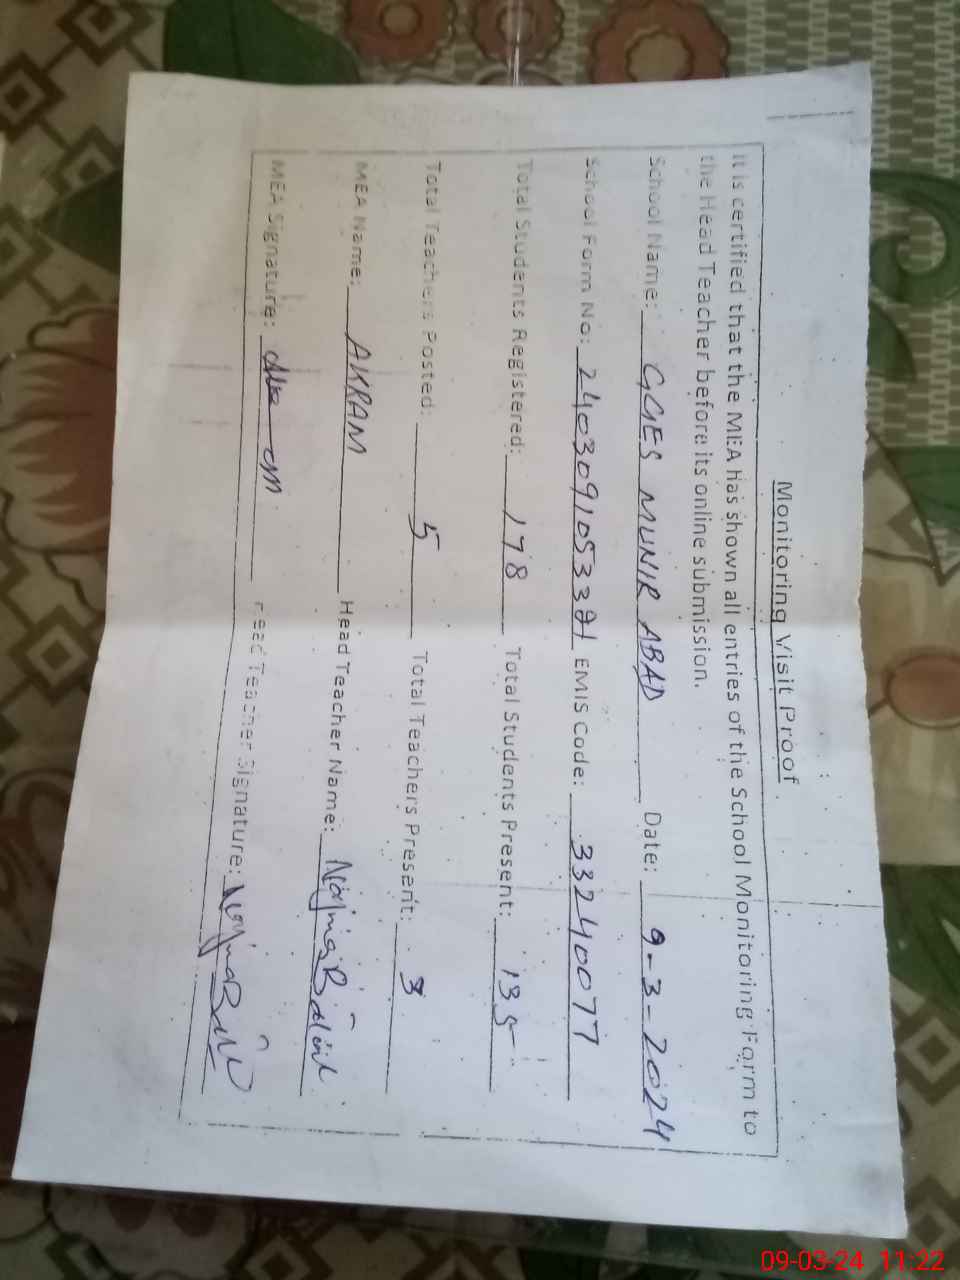 Monitoring Visit Proof
It is certified that the MEA has shown all entries of the School Monitoring Form to
the Head Teacher before its online submission.
School Name: GGES MUNIR ABAD Date: 9-3-2024
School Form No: EMIS Code: 33240077
Total Students Registered: 178 Total Students Present: 135
Total Teachers Posted: 5 Total Teachers Present: 3
MEA Name: AKRAM Head Teacher Name: Najma
MEA Signature: Head Teacher Signature: Najma
09-03-24 11:22